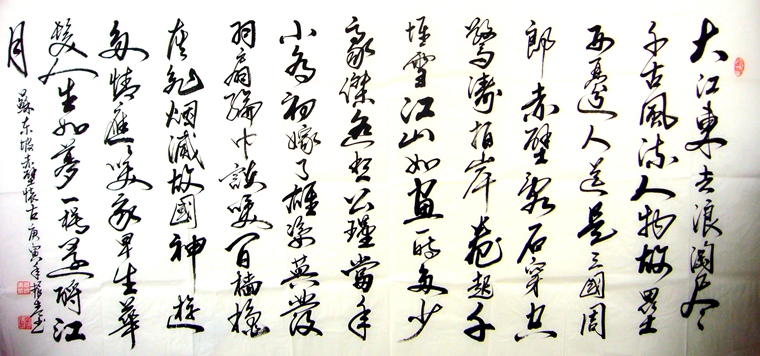 大江東去浪淘尽
千古風流人物故壘
西邊人道是三國周
郎赤壁亂石穿空
驚濤拍岸卷起千
堆雪江山如畫一時多少
豪傑遙想公瑾當年
小喬初嫁了雄姿英發
羽扇綸巾談笑间檣櫓
灰飛烟滅故國神遊
多情應笑我早生華
髮人生如夢一樽還酹江
月
蘇東坡赤壁懷古庚寅年